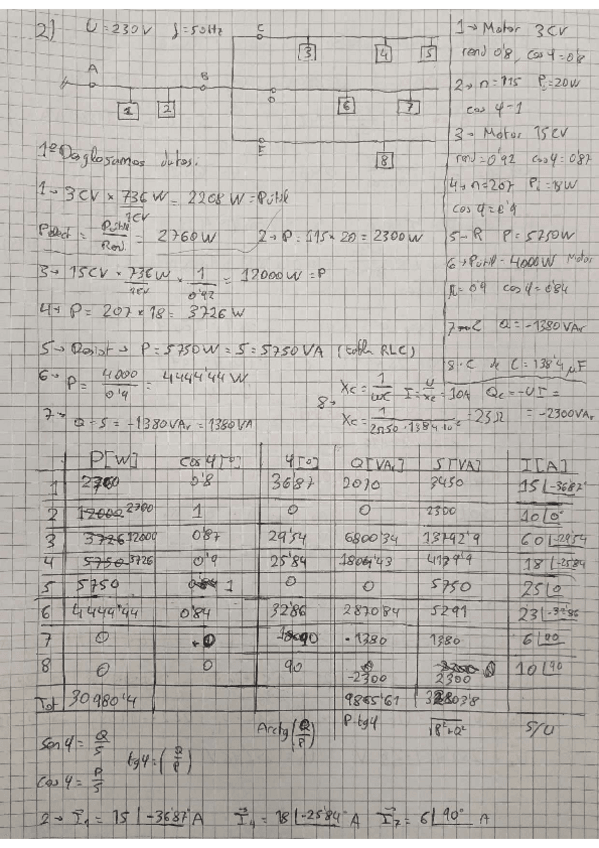 2) U=230V f=50Hz
A
B
C
D
E
1
2
3
4
5
6
7
8
1→ Motor 3CV
rend 0'8, cos φ=0'8
2→ n=115 P=20W
cos φ-1
3→ Motor 15CV
rend=0'92 cos φ=0'87
4→ n=207 P=18W
cos φ=0'9
5→R P=5750W
6→Putil-4000W Motor
R=0'9 cos φ=0'84
7→C Q=-1380VAr
8·C de C=138'4μF
1º Desglosamos datos:
1→3CV × 736W/1CV = 2208W=Putil
Pabst= Putil/Rend = 2760W 2→P=115×20=2300W
3→15CV × 736W/1CV × 1/0'92 = 12000W=P
4→ P= 207×18= 3726W
5→ Resist → P=5750W=S=5750VA (tabla RLC)
6→ P= 4000/0'9 = 4444'44W
8→ Xc=1/ωC I=U/Xc=10A Qc=-UI=
Xc= 1/2π50·138'4·10⁻⁶ =23Ω = -2300VAr
7→ Q=S= -1380VAr=1380VA
P[W] cos φ[º] φ[º] Q[VAr] S[VA] I[A]
1 2760 0'8 36'87 2070 3450 15∟-36'87º
2 12000 2300 1 0 0 2300 10∟0º
3 3726 12000 0'87 29'54 6800'34 13792'9 60∟-29'54
4 5750 3726 0'9 25'84 1804'43 4139'9 18∟-25'84
5 5750 1 0 0 5750 25∟0
6 4444'44 0'84 32'86 2870'84 5291 23∟-32'86
7 0 0 90 -1380 1380 6∟90
8 0 0 90 -2300 2300 10∟90
Tot 30980'4 9865'61
Arctg(Q/P) P·tgφ √P²+Q² S/U
sen φ= Q/S
tgφ=(Q/P)
cos φ= P/S
2→ I₁= 15∟-36'87º A I₄= 18∟-25'84º A I₇= 6∟90º A